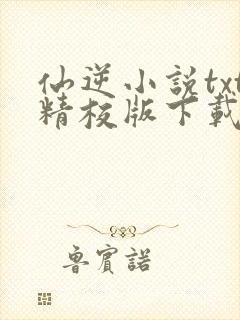 仙逆小説txt
精校版下載
魯賓諾